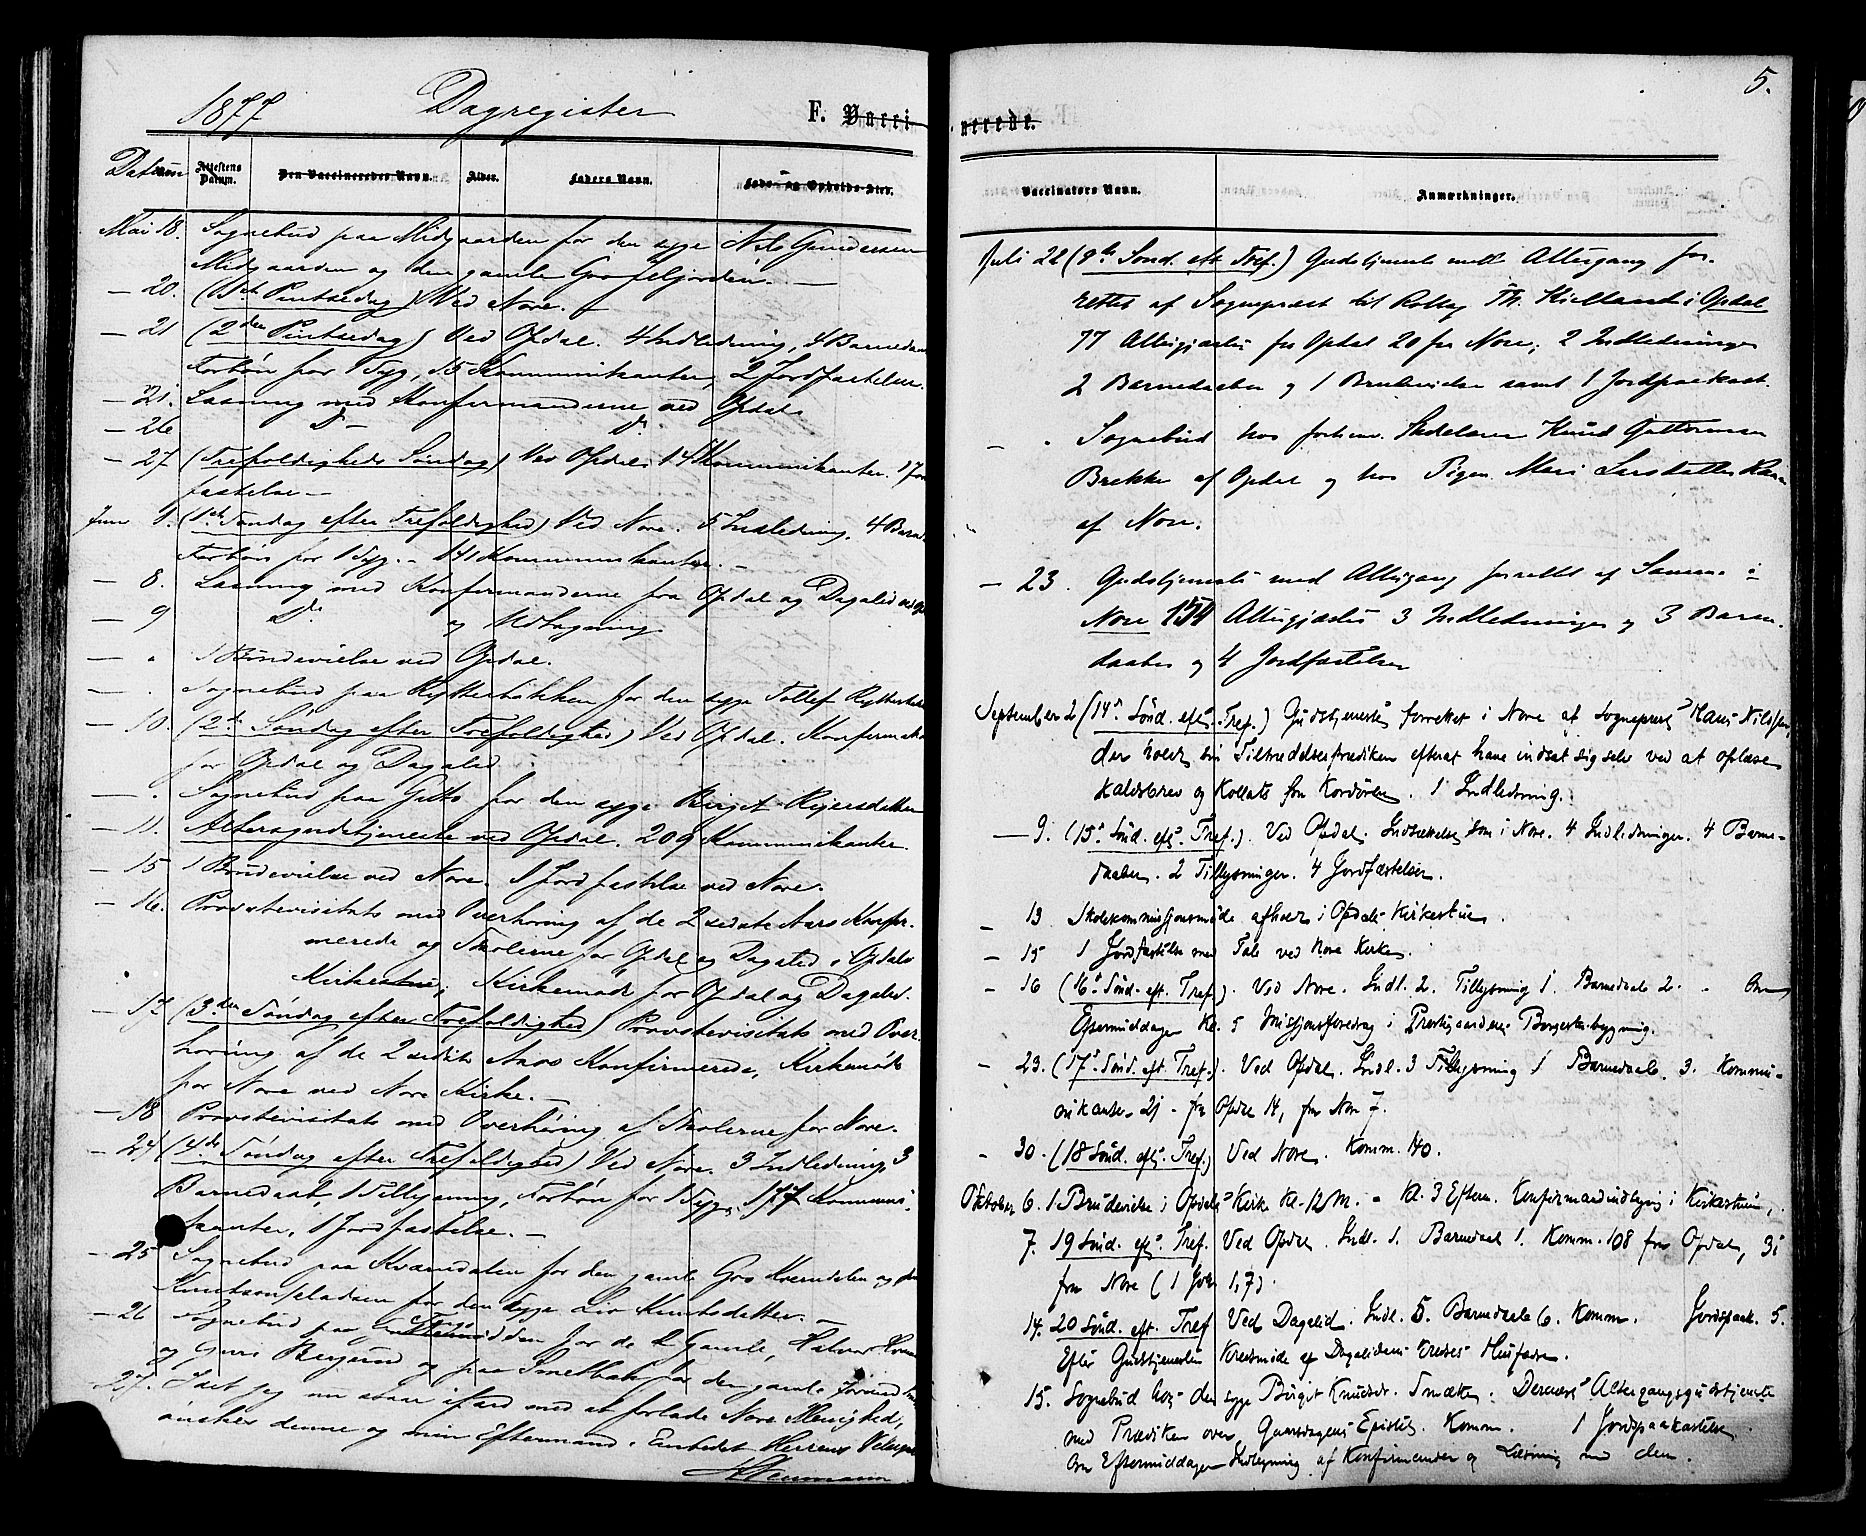 1877 Dagregister F. Vacci
Datum Attestens Datum. Den Vaccineredes Navn. Alder. Faders Navn. Føde- og Opholds-Sted.
Mai 18. Sognebud paa Midgaarden for den syge Nils Gundersen
Midgaarden og den gamle Gro
— 20. (1ste Pintsedag) Ved Nore. —
— 21 (2den Pintsedag) Ved Opdal. 4 Indledning, 4 Barnedaab
Forbøn for 1 Syg, 15 Kommunikanter, 2 Jordfæstelser.
— 21. Læsning med Konfirmanderne ved Opdal
— 26 D — Do
— 27 (Trefoldigheds Søndag) Ved Opdal. 14 Kommunikanter. 1 Jord
fæstelse —
Juni (1ste Søndag efter Trefoldighed) Ved Nore. 5 Indledning. 4 Barned
Forbøn for 1 Syg. — 141 Kommunikanter. —
— 8. Læsning med Konfirmanderne fra Opdal og Dagalid
— 9 Do og Udtagning.
— " 1 Brudevielse ved Opdal.
— . Sognebud paa for den syge Tollef
— 10. (2den Søndag efter Trefoldighed) Ved Opdal. Konfirmation
for Opdal og Dagalid
— . Sognebud paa for den syge Birgit Reiersdatter
— 11. Altergudstjeneste ved Opdal. 209 Kommunikanter.
— 15 1 Brudevielse ved Nore. 1 Jordfæstelse ved Nore.
— 16. Provstevisitats med Overhøring af de 2 sidste Aars Konfir-
merede og Skolerne for Opdal og Dagalid i Opdals
Kirkestue, Kirkemøde for Opdal og Dagalid.
— 17 (3den Søndag efter Trefoldighed) Provstevisitats med Over-
høring af de 2 sidste Aars Konfirmerede, Kirkemøde
for Nore ved Nore Kirke. —
— 18 Provstevisitats med Overhøring af Skolerne for Nore.
— 24 (4de Søndag efter Trefoldighed) Ved Nore. 3 Indledning 3
Barnedaab, 1 Tillysning, Forbøn for 1 Syg, Kommuni-
kanter, 1 Jordfæstelse. —
— 25 Sognebud paa Kværndalen for den gamle Gro Kværndalen og paa
Knutsonpladsen for den syge Liv Knutsdatter. —
— 26 Sognebud paa for de 2 Gamle, Halvor
og og paa for den gamle
— 27. Idet jeg nu staar ifærd med at forlade Nore Menighed,
ønsker denne og min Eftermand i Embedet Herrens Velsignelse
5.
nerede.
Vaccinators Navn. Anmærkninger.
Juli 22 (8de Sönd. eft. Tref.) Gudstjeneste med Altergang for-
rettet af Sognepræst til Rollag Th. Kielland i Opdal
77 Altergjæster fra Opdal 20 fra Nore; 2 Indledninger
2 Barnedaaber og 1 Brudevielse samt 1 Jordpaakast.
— . Sognebud hos forhenv. Knud Guttormsen
Brekke af Opdal og hos Pigen Mari Larsdatter
af Nore.
— 23. Gudstjeneste med Altergang forrettet af Samme i
Nore 154 Altergjæster 3 Indledninger og 3 Barne-
daaber og 4 Jordfæstelser
September 2 (14de Sönd. eft. Tref.) Gudstjeneste forrettet i Nore af Sogneprest Hans Nilssen,
der holdt sin Tiltrædelsesprædiken efterat have indsat sig selv ved at oplæse
Kaldsbrev og Kollats fra Kordören. 1 Indledning.
— 9. (15de Sönd. eft. Tref.). Ved Opdal. Indsættelse som i Nore. 4 Indledninger. 4 Barne-
daaber. 2 Tillysninger. 4 Jordfæstelser.
— 13 Skolekommissjonsmøde afholdt i Opdals Kirkestue.
— 15 1 Jordfæstelse med Tale ved Nore Kirke.
— 16 (16de Sönd. eft. Tref.). Ved Nore. Indl. 2. Tillysning 1. Barnedaab 2. - Om
Eftermiddagen Kl. 5 Missjonsforedrag i Prestegaardens Borgestubygning.
— 23. (17de Sönd. eft. Tref.). Ved Opdal. Indl. 3 Tillysning 1 Barnedaab. 3. Kommu-
nikanter 21 - fra Opdal 14, fra Nore 7.
— 30. (18 Sönd. eft. Tref.) Ved Nore. Komm. 40.
Oktober 6. 1 Brudevielse i Opdals Kirke Kl. 12 M. - Kl. 3 Efterm. Konfirmandindlæg i Kirkestuen.
7. 19 Sönd. eft. Tref. Ved Opdal. Indl. 1. Barnedaab 1. Komm. 108 fra Opdal, 31
fra Nore
14. 20 Sönd. eft. Tref. Ved Dagalid. Indl. 5. Barnedaab 6. Komm. Jordpaak. 5.
Efter Gudstjenesten Kredsmöde af Dagalidens Kredses Husfædre.
15. Sognebud hos den syge Birgit Knudsdr. Dernæst Altergangsgudstjeneste
med Prædiken over Epistel. Komm. 1 Jordpaakastelse
Om Eftermiddagen Indlægning af Konfirmander og Læsning med dem.